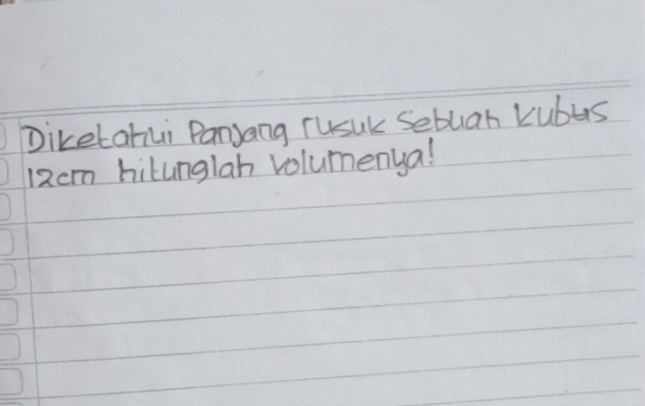 Diketahui Panjang rusuk sebuah kubus
12cm hitunglah volumenya!